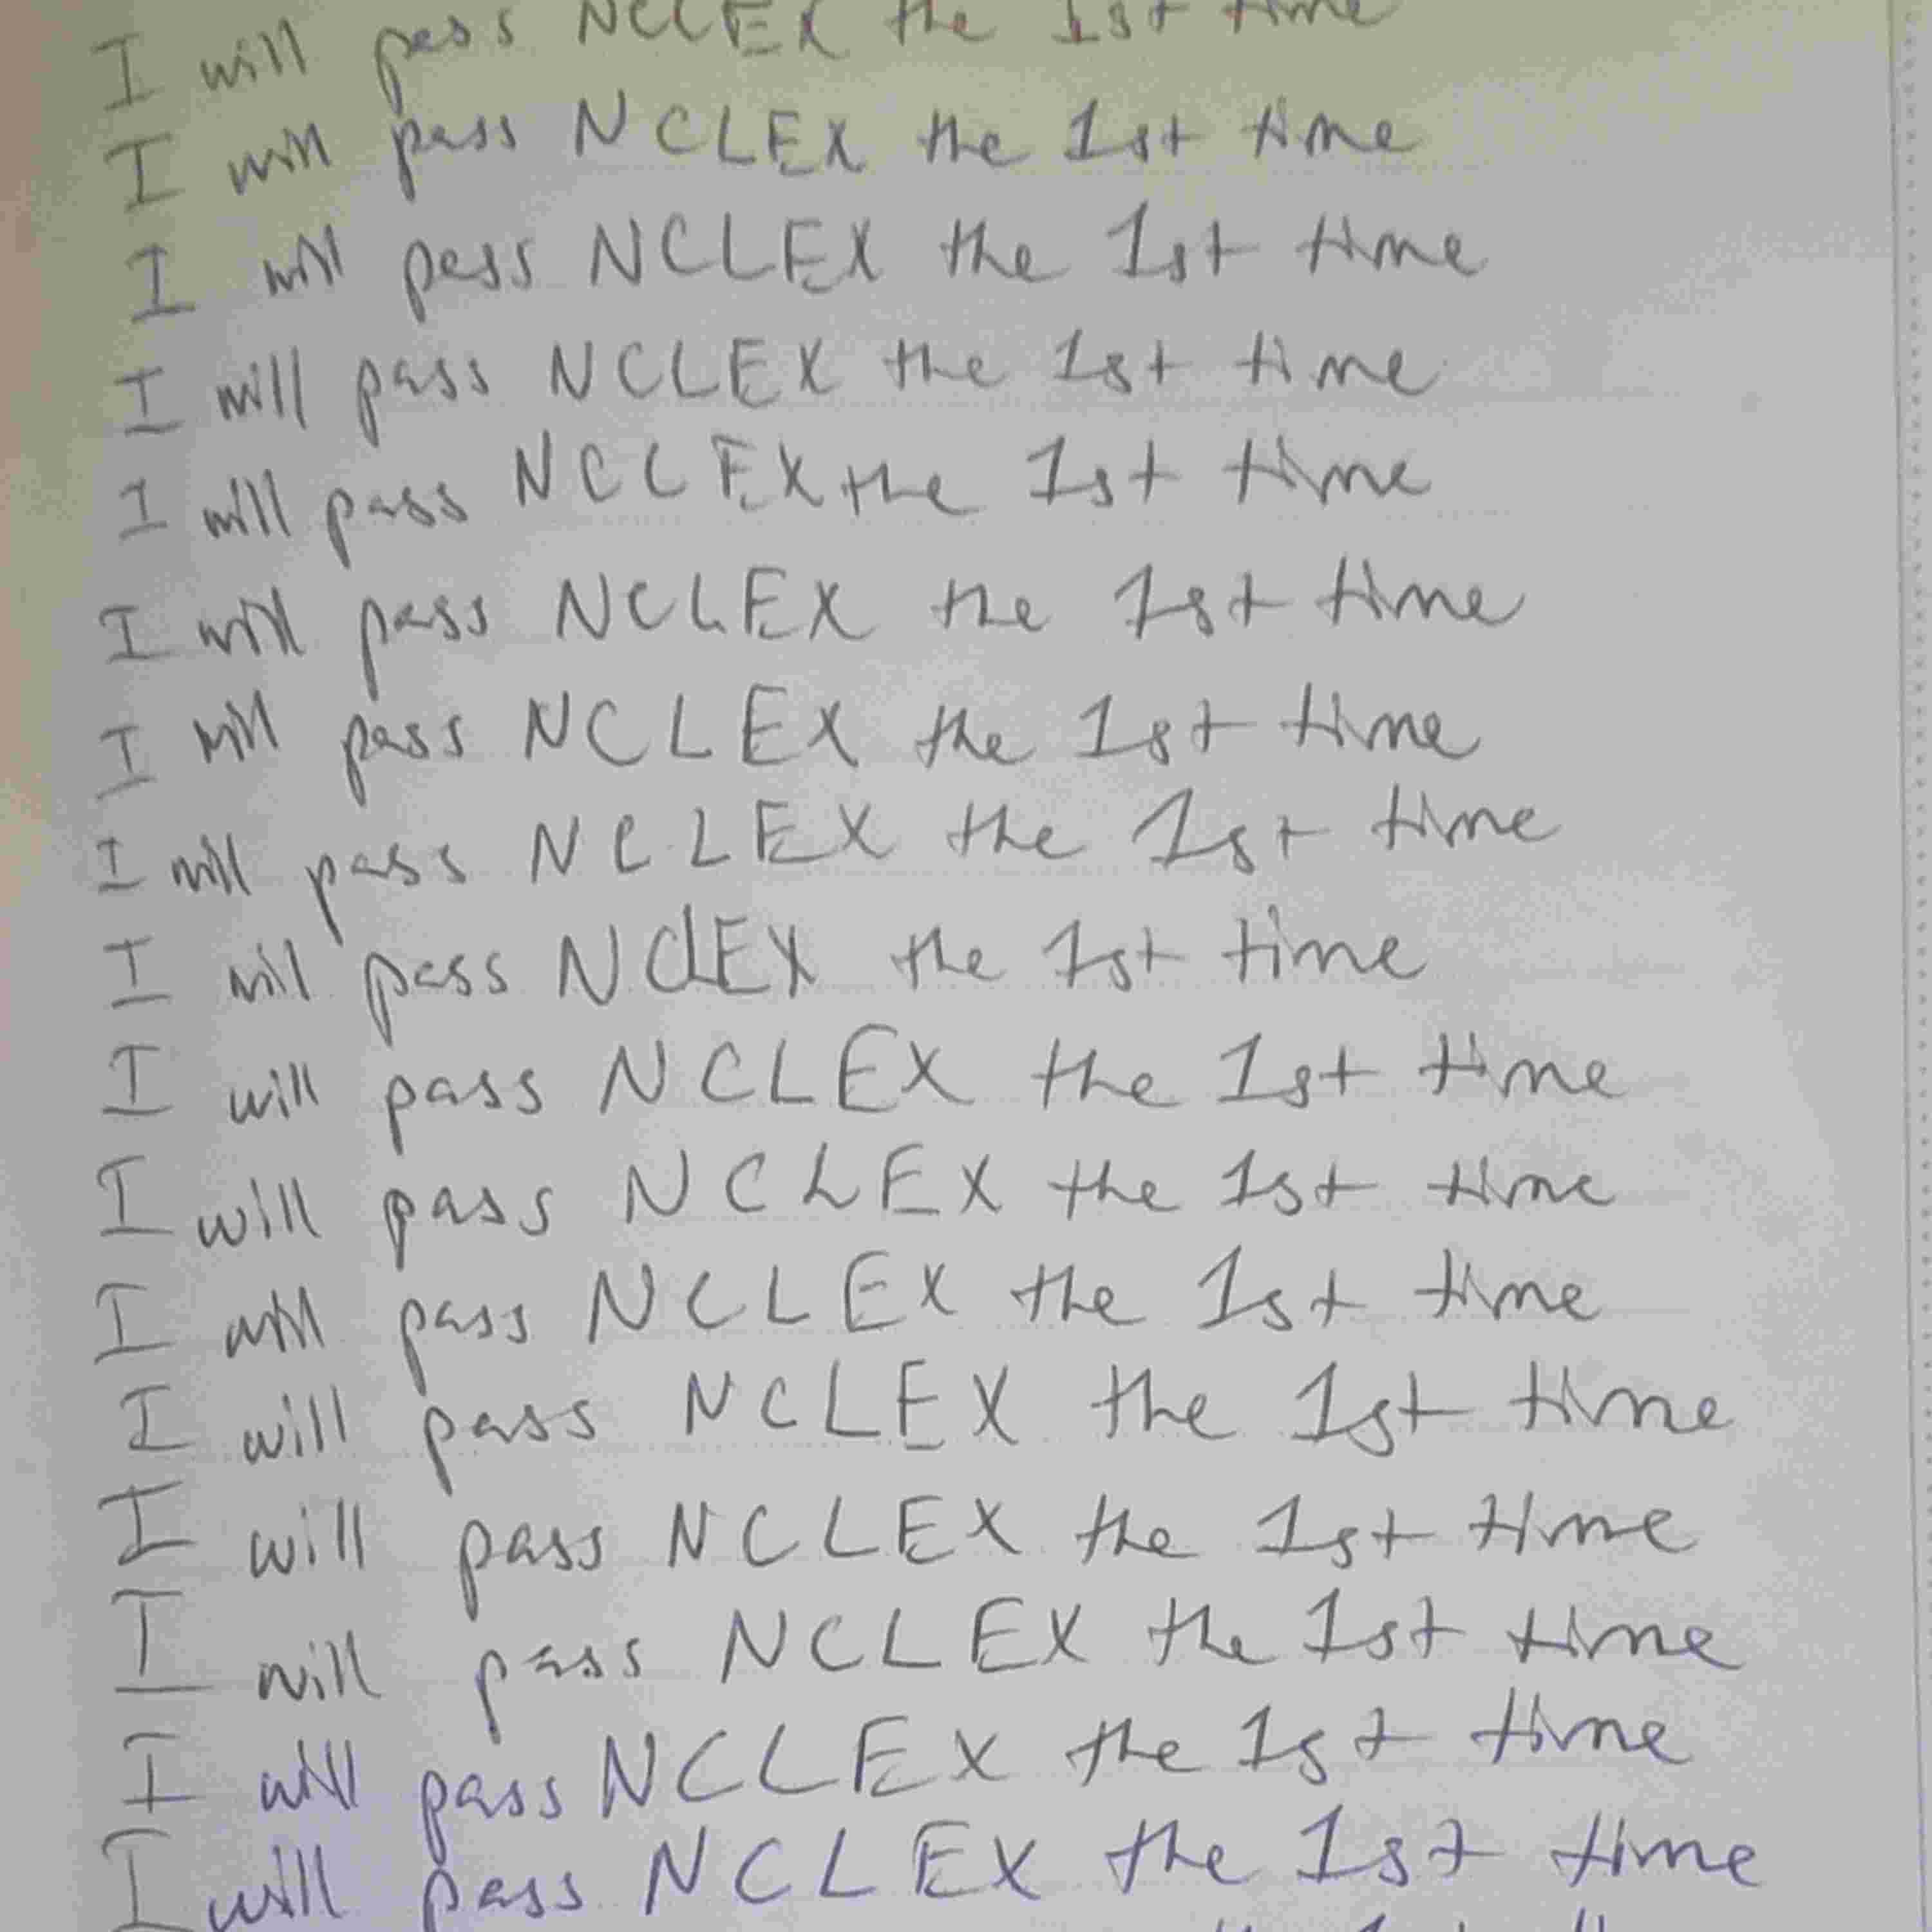 I will pass NCLEX the 1st time
I will pass NCLEX the 1st time
I will pass NCLEX the 1st time
I will pass NCLEX the 1st time
I will pass NCLEX the 1st time
I will pass NCLEX the 1st time
I will pass NCLEX the 1st time
I will pass NCLEX the 1st time
I will pass NCLEX the 1st time
I will pass NCLEX the 1st time
I will pass NCLEX the 1st time
I will pass NCLEX the 1st time
I will pass NCLEX the 1st time
I will pass NCLEX the 1st time
I will pass NCLEX the 1st time
I will pass NCLEX the 1st time
I will pass NCLEX the 1st time